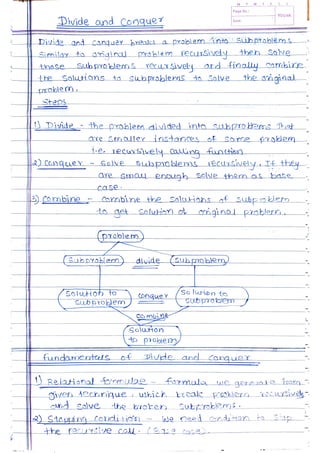 Divide and Conquer
Page No.:
Date:
YOUVA
Divide and Conquer breaks a problem into subproblems
similar to original problem recursively then solve
these subproblems recursively and finally combine
the solutions to subproblems to solve the original
problem.
Steps
1) Divide - the problem divided into subproblems that
are smaller instances of same problem
i.e. recursively calling function
2) Conquer - Solve subproblems recursively. If they
are small enough solve them as base
case.
3) Combine - Combine the solutions of subproblem
to get solution of original problem.
problem
Subproblem divide subproblem
Solution to subproblem conquer Solution to subproblem
combine
Solution to problem
fundamentals of Divide and Conquer
1) Relational formula - formula we generate from
given technique. which break problem recursively
and solve the broken subproblems.
2) Stopping condition - we need condition to stop
the recursive call. (Base case).